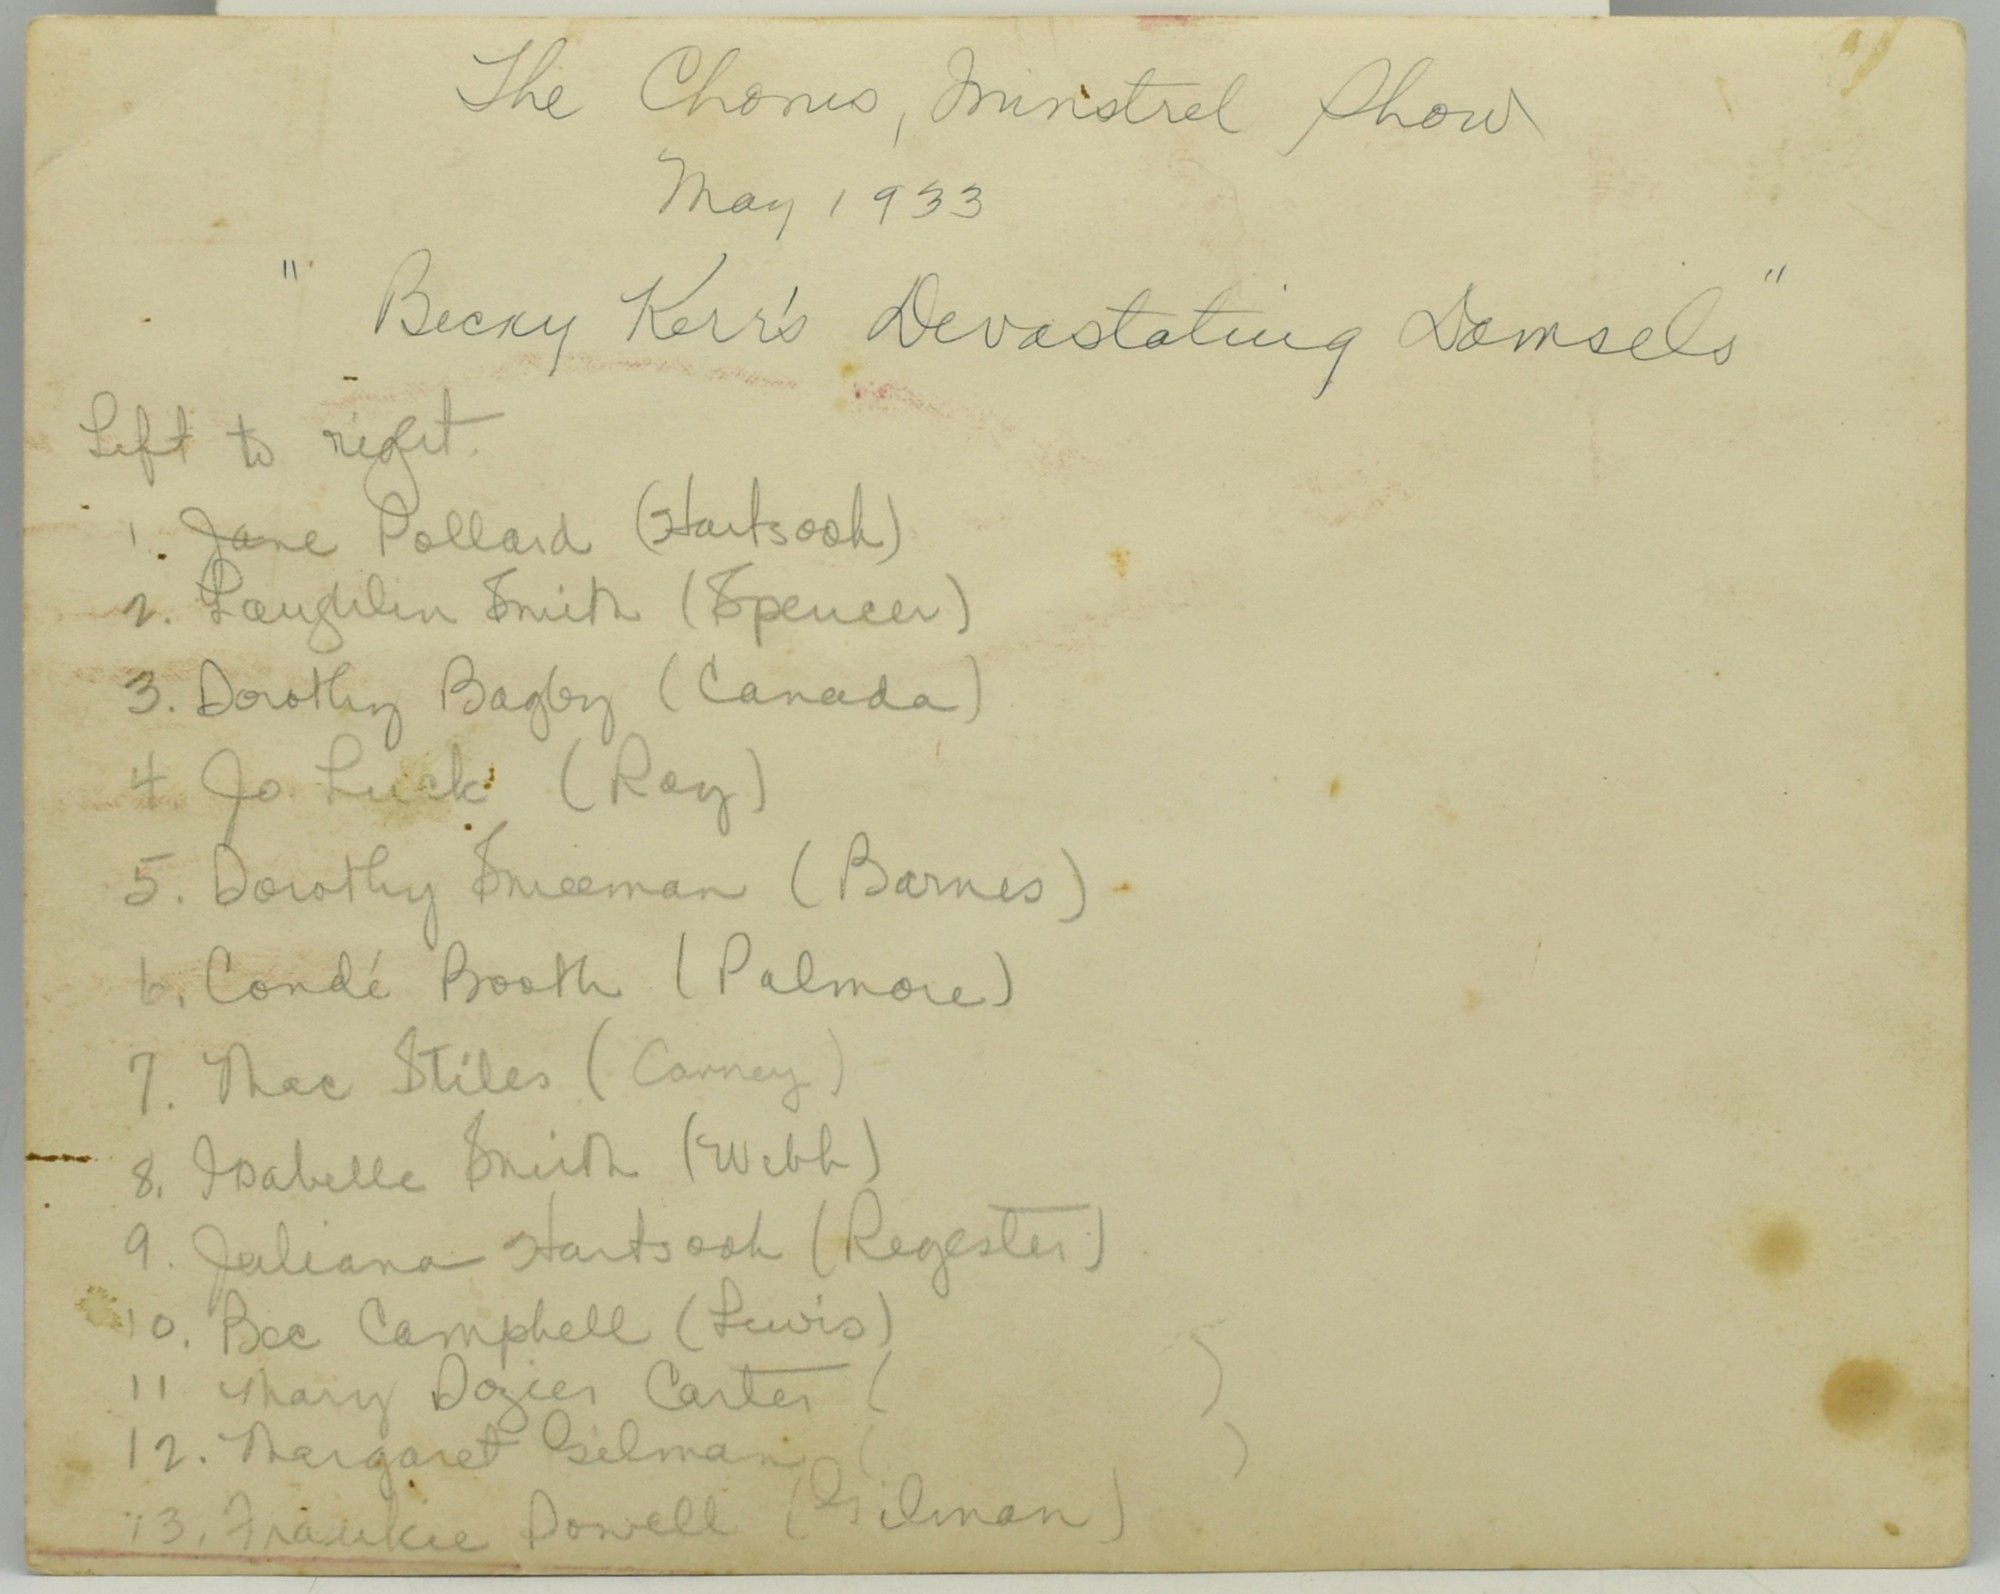 The Chorus, Minstrel Show
May 1933
"Becky Kerr's Devastating Damsels"
Left to right.
1. Jane Pollard (Hartsook)
2. Laughlin Smith (Spencer)
3. Dorothy Bagby (Canada)
4 Jo Luck (Ray)
5. Dorothy (Barnes)
6. Condé Booth (Palmore)
7. Mac Stiles (Carney)
8. Isabelle Smith (Webb)
9. Juliana Hartsook (Regester)
10. Bee Campbell (Lewis)
11 Mary Dozier Carter ( )
12. Margaret Gilman ( )
13. Frankie Dowell (Gilman)